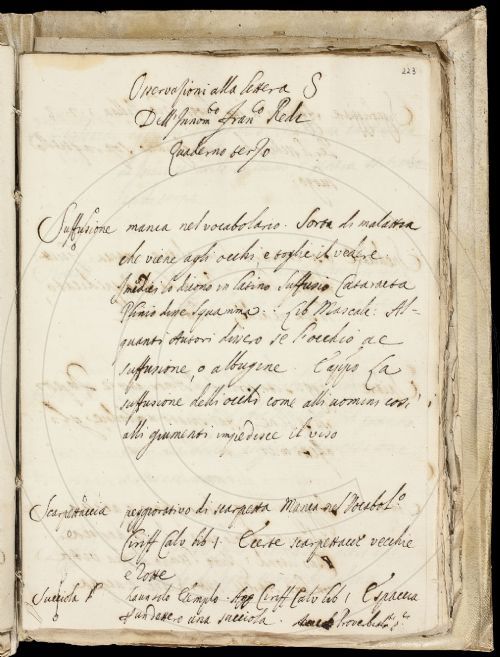 223
Osservazioni alla lettera S
Dell'Innom.to Fran.co Redi
Quaderno terzo
Suffusione manca nel vocabolario. Sorta di malattia
che viene agli occhi, e toglie il vedere.
I medici lo dicono in latino Suffusio Cataracta
Plinio disse Squamma. Lib Mascalc. Al-
quanti Autori dicono se l'occhio
suffusione, o albugine. Cappo La
suffusione delli occhi come alli uomini così
alli giumenti impedisce il viso
Scarpettaccia peggiorativo di scarpetta Manca nel Vocabol.o
Ciriff Calv lib 1. E certe scarpettacce vecchie
e rotte
Succiola
Ciriff Calv lib 1. E spaccia
una succiola.